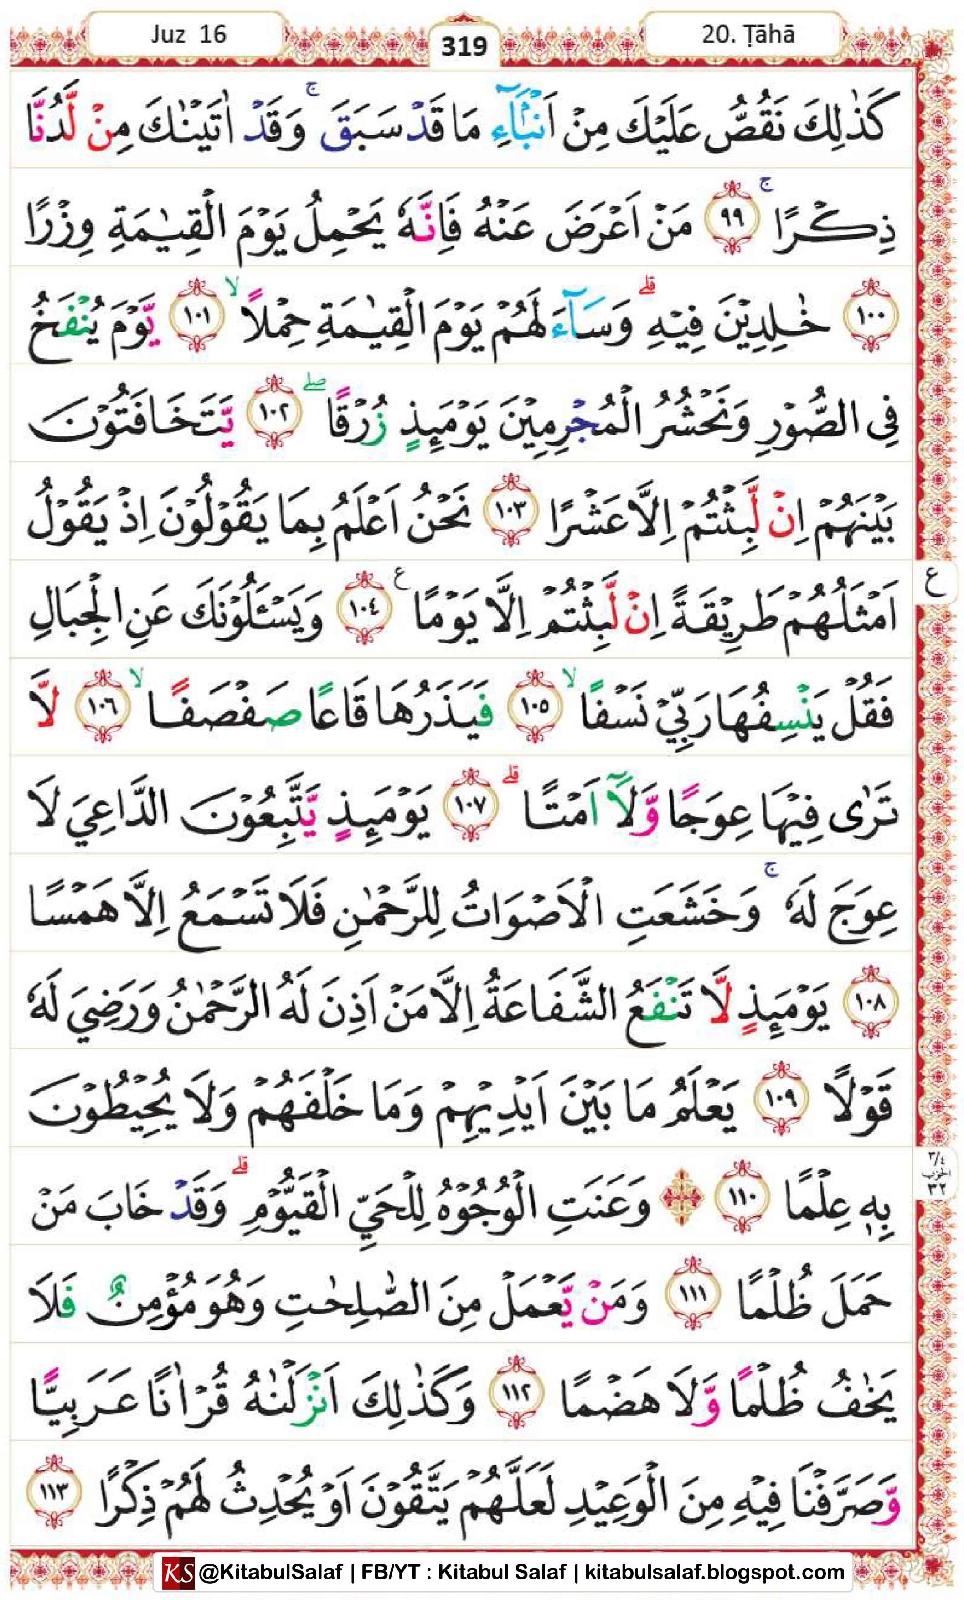 Juz 16
319
20. Ṭāhā
كَذٰلِكَ نَقُصُّ عَلَيْكَ مِنْ اَنْۢبَاۤءِ مَا قَدْ سَبَقَ ۚ وَقَدْ اٰتَيْنٰكَ مِنْ لَّدُنَّا
ذِكْرًا ۚ ٩٩ مَنْ اَعْرَضَ عَنْهُ فَاِنَّهٗ يَحْمِلُ يَوْمَ الْقِيٰمَةِ وِزْرًا
١٠٠ خٰلِدِيْنَ فِيْهِ ۗ وَسَاۤءَ لَهُمْ يَوْمَ الْقِيٰمَةِ حِمْلًا ۙ ١٠١ يَّوْمَ يُنْفَخُ
فِى الصُّوْرِ وَنَحْشُرُ الْمُجْرِمِيْنَ يَوْمَىِٕذٍ زُرْقًا ۖ ١٠٢ يَّتَخَافَتُوْنَ
بَيْنَهُمْ اِنْ لَّبِثْتُمْ اِلَّا عَشْرًا ١٠٣ نَحْنُ اَعْلَمُ بِمَا يَقُوْلُوْنَ اِذْ يَقُوْلُ
اَمْثَلُهُمْ طَرِيْقَةً اِنْ لَّبِثْتُمْ اِلَّا يَوْمًا ࣖ ١٠٤ وَيَسْـَٔلُوْنَكَ عَنِ الْجِبَالِ
ع
فَقُلْ يَنْسِفُهَا رَبِّيْ نَسْفًا ۙ ١٠٥ فَيَذَرُهَا قَاعًا صَفْصَفًا ۙ ١٠٦ لَّا
تَرٰى فِيْهَا عِوَجًا وَّلَآ اَمْتًا ۗ ١٠٧ يَوْمَىِٕذٍ يَّتَّبِعُوْنَ الدَّاعِيَ لَا
عِوَجَ لَهٗ ۚ وَخَشَعَتِ الْاَصْوَاتُ لِلرَّحْمٰنِ فَلَا تَسْمَعُ اِلَّا هَمْسًا
١٠٨ يَوْمَىِٕذٍ لَّا تَنْفَعُ الشَّفَاعَةُ اِلَّا مَنْ اَذِنَ لَهُ الرَّحْمٰنُ وَرَضِيَ لَهٗ
قَوْلًا ١٠٩ يَعْلَمُ مَا بَيْنَ اَيْدِيْهِمْ وَمَا خَلْفَهُمْ وَلَا يُحِيْطُوْنَ
بِهٖ عِلْمًا ١١٠ وَعَنَتِ الْوُجُوْهُ لِلْحَيِّ الْقَيُّوْمِ ۗ وَقَدْ خَابَ مَنْ
٣/٤
الحزب
٣٢
حَمَلَ ظُلْمًا ١١١ وَمَنْ يَّعْمَلْ مِنَ الصّٰلِحٰتِ وَهُوَ مُؤْمِنٌ فَلَا
يَخٰفُ ظُلْمًا وَّلَا هَضْمًا ١١٢ وَكَذٰلِكَ اَنْزَلْنٰهُ قُرْاٰنًا عَرَبِيًّا
وَّصَرَّفْنَا فِيْهِ مِنَ الْوَعِيْدِ لَعَلَّهُمْ يَتَّقُوْنَ اَوْ يُحْدِثُ لَهُمْ ذِكْرًا ١١٣
KS @KitabulSalaf | FB/YT : Kitabul Salaf | kitabulsalaf.blogspot.com